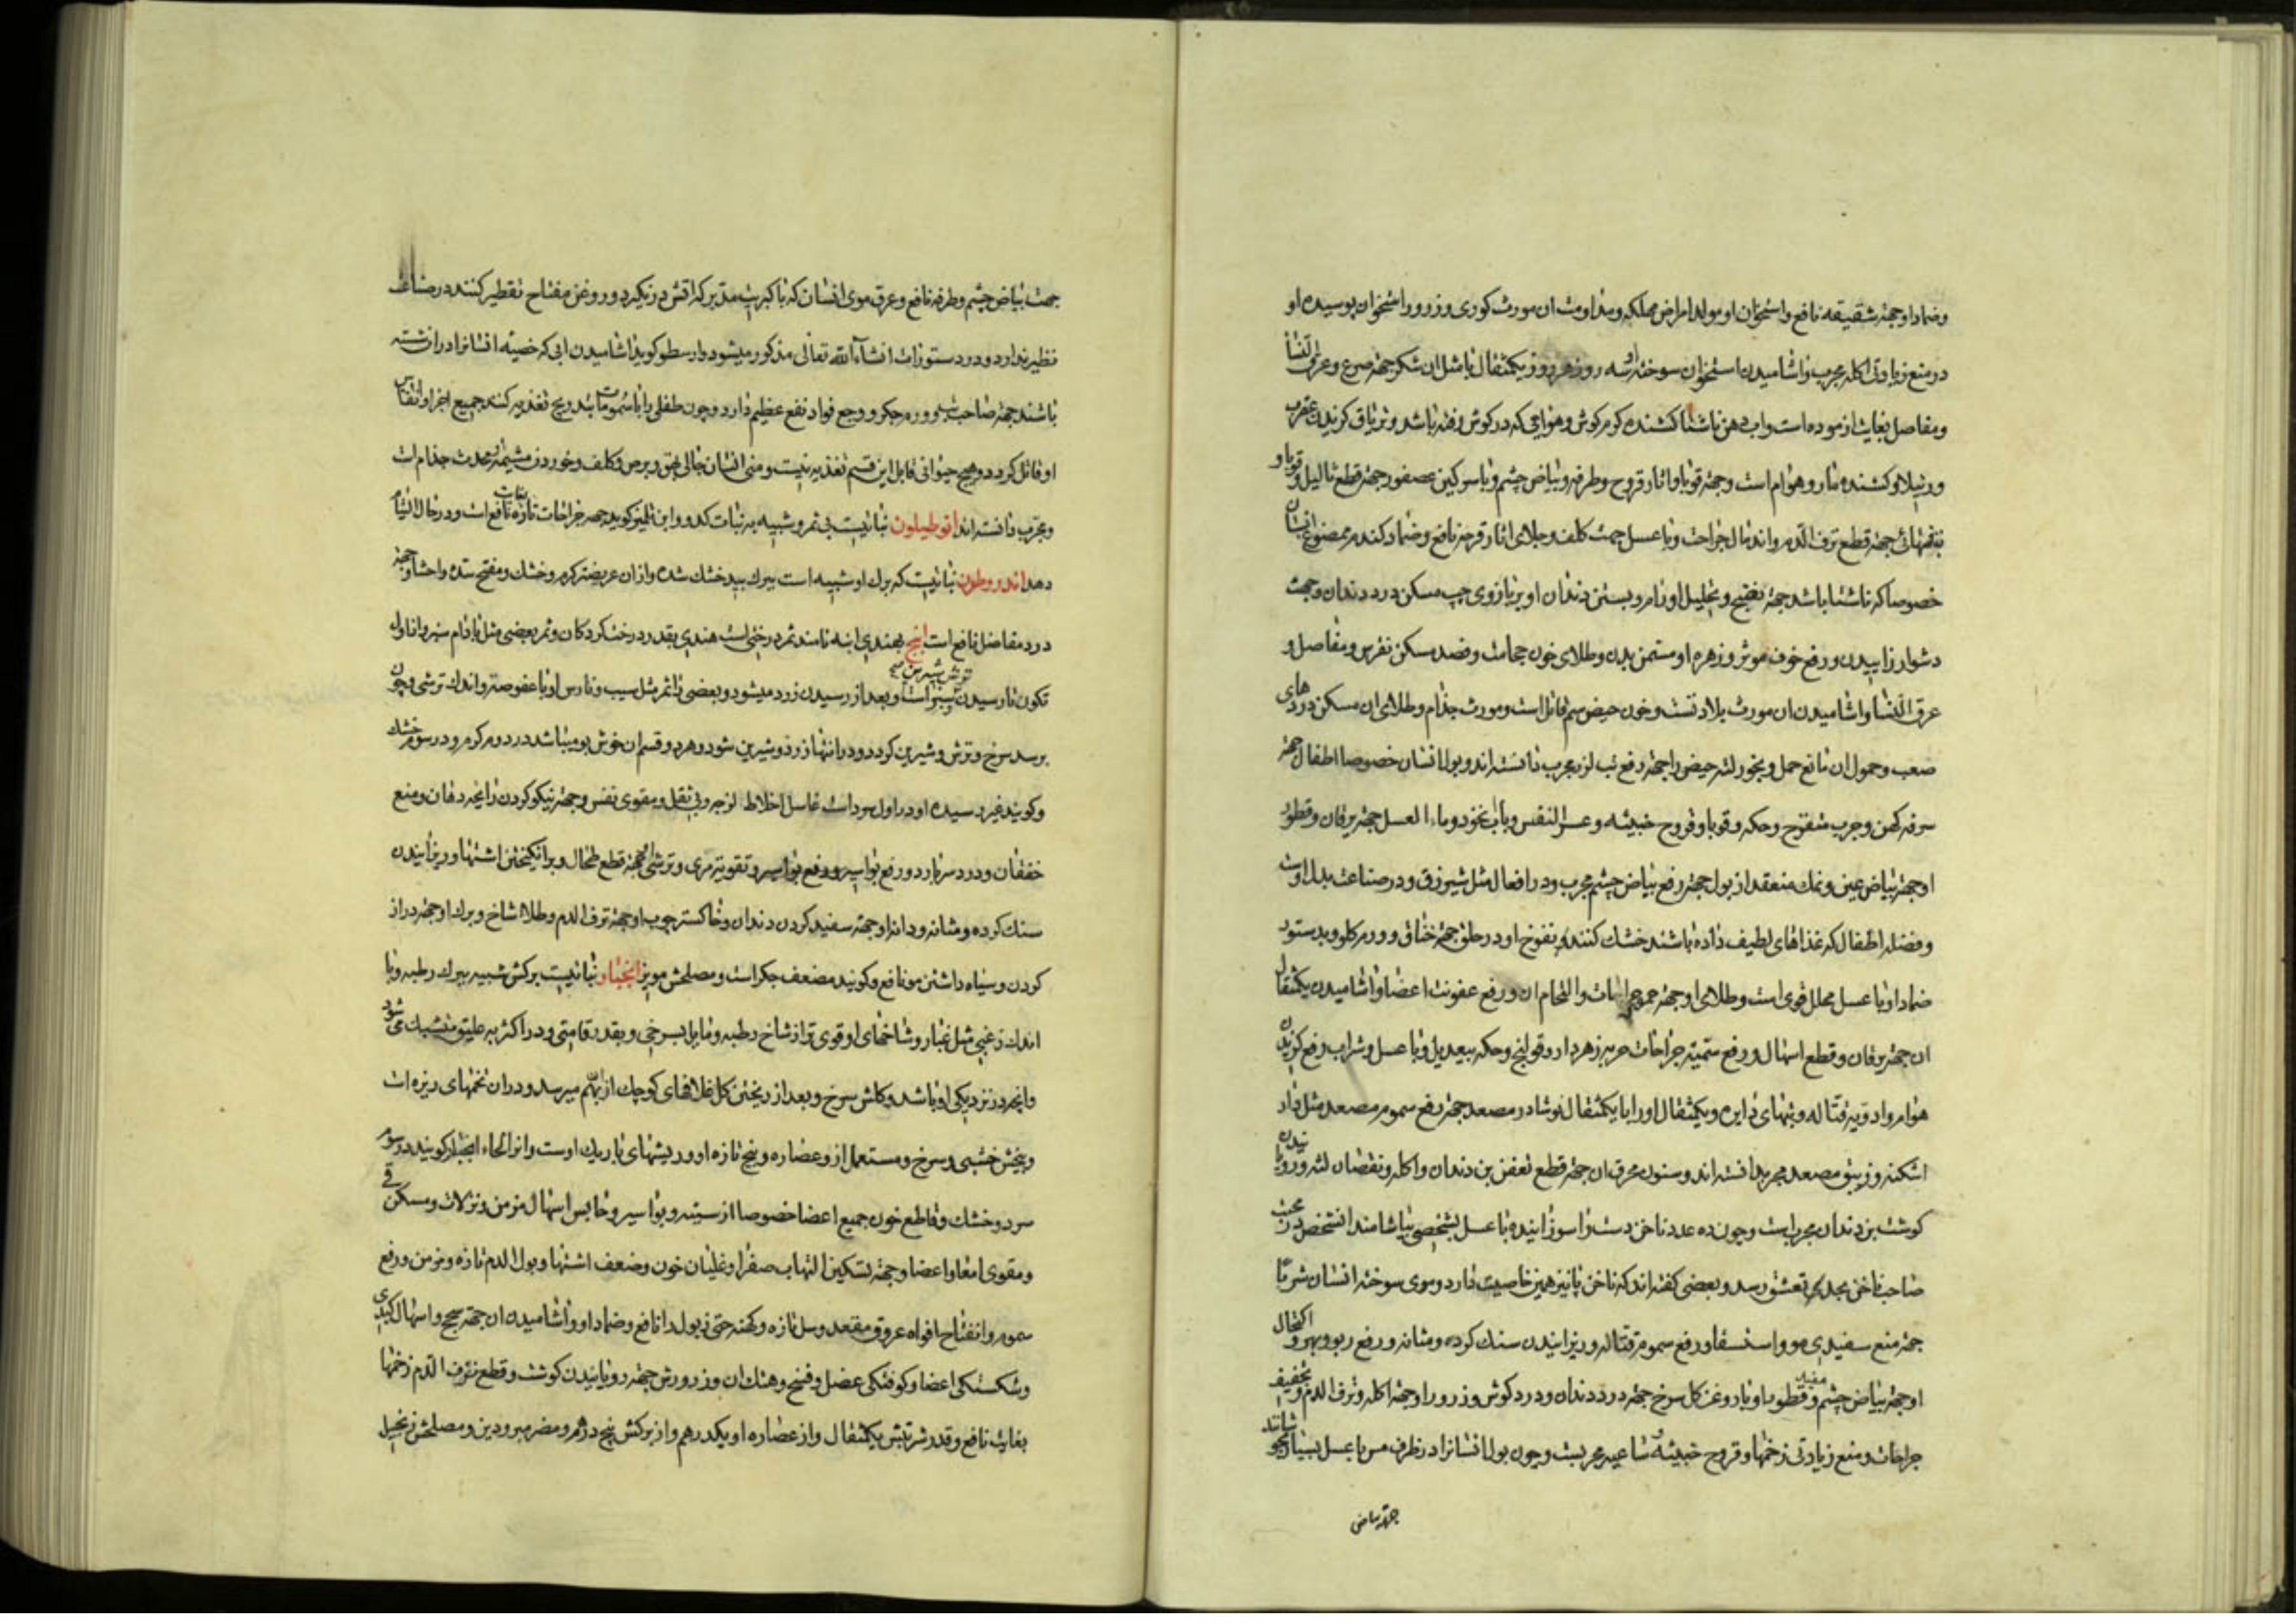 وضماد او جهته شقیقه نافع و استخوان او مولد امراض مهلکه و مداومت ان مورث کوری و ذرور استخوان پوسیده او
در منع زیادتی اکله مجرب و اشامیدن استخوان سوخته او سه روز هر روز یکمثقال با مثل ان شکر جهته صرع و عرق النسا
و مفاصل بغایت ازموده است و اب دهن ناشتا کشنده کرم کوش و هوامی که در کوش رفته باشد و تریاق کزیدن عقرب
و رتیلا و کشنده مار و هوام است و جهته قوبا و اثار قروح و طرفه و بیاض چشم و با سرکین عصفور جهته قطع ثالیل و قوبا و
بتنهائی جهته قطع نزف الدم و اندمال جراحت و با عسل جهت کلف و جلای اثار قرحه نافع و ضماد کندم ممضوغ انسان
خصوصا که ناشتا باشد جهته نضج و تحلیل اورام و بستن دندان او بر بازوی چپ مسکن درد دندان و جهت
دشوار زاییدن و رفع خوف موثر و زهره او مسمن بدن و طلای خون حجامت و فصد مسکن نقرس و مفاصل و
عرق النسا و اشامیدن ان مورث بلادتست و خون حیض سم قاتل است و مورث جذام و طلای ان مسکن دردهای
صعب و حمول ان مانع حمل و بخور لته حیض را جهته رفع تب لرز مجرب دانسته اند و بول انسان خصوصا اطفال جهته
سرفه کهن و جرب متقرح و حکه و قوبا و قروح خبیثه و عسر النفس و با اب نخود و ماء العسل جهته یرقان و قطور
او جهته بیاض عین و نمک منعقد از بول جهته رفع بیاض چشم مجرب و در افعال مثل شیرزق و در صناعت بدل اوست
و فضله اطفال که غذاهای لطیف داده باشند خشک کنند و نفوخ او در حلق جهته خناق و ورم کلو و بدستور
ضماد او با عسل محلل قوی است و طلای او جهته جراحات و التحام ان و رفع عفونت اعضا و اشامیدن یکمثقال
ان جهته یرقان و قطع اسهال و رفع سمیته جراحات حربه زهردار و قولنج و حکه بیعدیل و با عسل و شراب رفع کزیدن
هوام و ادویه قتاله و تبهای دایره و یکمثقال او را با یکمثقال نوشادر مصعد جهته رفع سموم مصعد مثل داراشکنه
اشکنه و زیبق مصعد مجرب دانسته اند و سنون محرق ان جهته قطع تعفن بن دندان و اکله و نقصان لثه و رویانیدن
کوشت بن دندان مجربست و چون ده عدد ناخن دست را سوزانیده با عسل بشخصی بیاشامند انشخص در محبت
صاحب ناخن بحد تعشق رسد و بعضی کفته اند که ناخن پا نیز همین خاصیت دارد و موی سوخته انسان شربا
جهته منع سفیدی مو و استسقا و رفع سموم قتاله و ریزانیدن سنک کرده و مثانه و رفع ربو و بهر و اکتحال
او جهته بیاض چشم مفید و قطور او با روغن کل سرخ جهته درد دندان و درد کوش و ذرور او جهته اکله و نزف الدم و تخفیف
جراحات و منع زیادتی زخمها و قروح خبیثه و ساعیه مجربست و چون بول انسانرا در ظرف مس با عسل بسیار بجوشانند
جهته بیاض
جهت بیاض چشم و طرفه نافع و عرق موی انسان که با کبریت مدبر که اتش در نکیرد و روغن مفتاح تقطیر کنند در صناعت
نظیر ندارد و در دستورات انشاء الله تعالی مذکور میشود و ارسطو کوید اشامیدن ابی که خصیه انسانرا در ان شسته
باشند جهته صاحب ورم جکر و وجع فواد نفع عظیم دارد و چون طفلی را با سمومات بتدریج تغذیه کنند جمیع اجزا و انفاس
او قاتل کردد و هیچ حیوانی قابل این قسم تغذیه نیست و منی انسان جالی بهق و برص و کلف و خوردن مشیمه محدث جذام است
و مجرب دانسته اند انوطیلون نباتیست بی ثمر و شبیه به نبات کدو و ابن تلمیذ کوید جهته جراحات تازه نافع است و در حال التیام
دهد اندروطون نباتیست که برک او شبیه است ببرک بید خشک شده و از ان عریضتر کرم و خشک و مفتح سده و احشا و جهته
درد مفاصل نافع است انبج بهندی انبه نامند ثمر درختیست هندی بقدر درخت کردکان و ثمر بعضی مثل بادام سبز و تا اول
تکون نارسیدن ترش سبز است و بعد از رسیدن زرد میشود و بعضی را ثمر مثل سیب و نارس او با عفوصت و اندک ترشی و چون
برسد سرخ و ترش و شیرین کردد و در انتها زرد و شیرین شود و هر دو قسم ان خوش بو میباشد در دوم کرم و در سوم خشک
و کویند غیر رسیده او در اول سرد است غاسل اخلاط لزجه و بی ثقل و مقوی نفس و جهته نیکو کردن رایحه دهان و منع
خفقان و درد سر بارد و رفع بواسیر و رفع بواسیر و تقویته مری و ترشی او جهته قطع طحال و برانکیختن اشتها و ریزانیدن
سنک کرده و مثانه و دانه او جهته سفید کردن دندان و خاکستر چوب او جهته نزف الدم و طلا شاخ و برک او جهته دراز
کردن و سیاه داشتن مو نافع و کویند مضعف جکر است و مصلحش مویز انجبار نباتیست برکش شبیه ببرک رطبه و با
اندک زغبی مثل غبار و شاخهای او قوی تر از شاخ رطبه و مایل بسرخی و بقدر قامتی و در اکثر به علیق متشبک می شود
و انچه در نزدیکی او باشد و کلش سرخ و بعد از ریختن کل غلافهای کوچک از بهم میرسد و در ان تخمهای ریزه است
و بیخش خشبی و سرخ و مستعمل از و عصاره و بیخ تازه او و ریشهای باریک اوست و انرا لحاء انجبار کویند در سوم
سرد و خشک و قاطع خون جمیع اعضا خصوصا از سینه و بواسیر و حابس اسهال مزمن و نزلات و مسکن قی
و مقوی امعا و اعضا و جهته تسکین التهاب صفرا و غلیان خون و ضعف اشتها و بول الدم تازه و مزمن و رفع
سموم و انفتاح افواه عروق مقعد و سل تازه و کهنه حتی ذبول را نافع و ضماد او و اشامیدن ان جهته سحج و اسهال کبدی
و شکستکی اعضا و کوفتکی عضل و فسخ و هتک ان و ذرورش جهته رویانیدن کوشت و قطع نزف الدم زخمها
بغایت نافع و قدر شربتش یکمثقال و از عصاره او یکدرهم و از برکش پنج درهم و مضر مبرودین و مصلحش زنجبیل